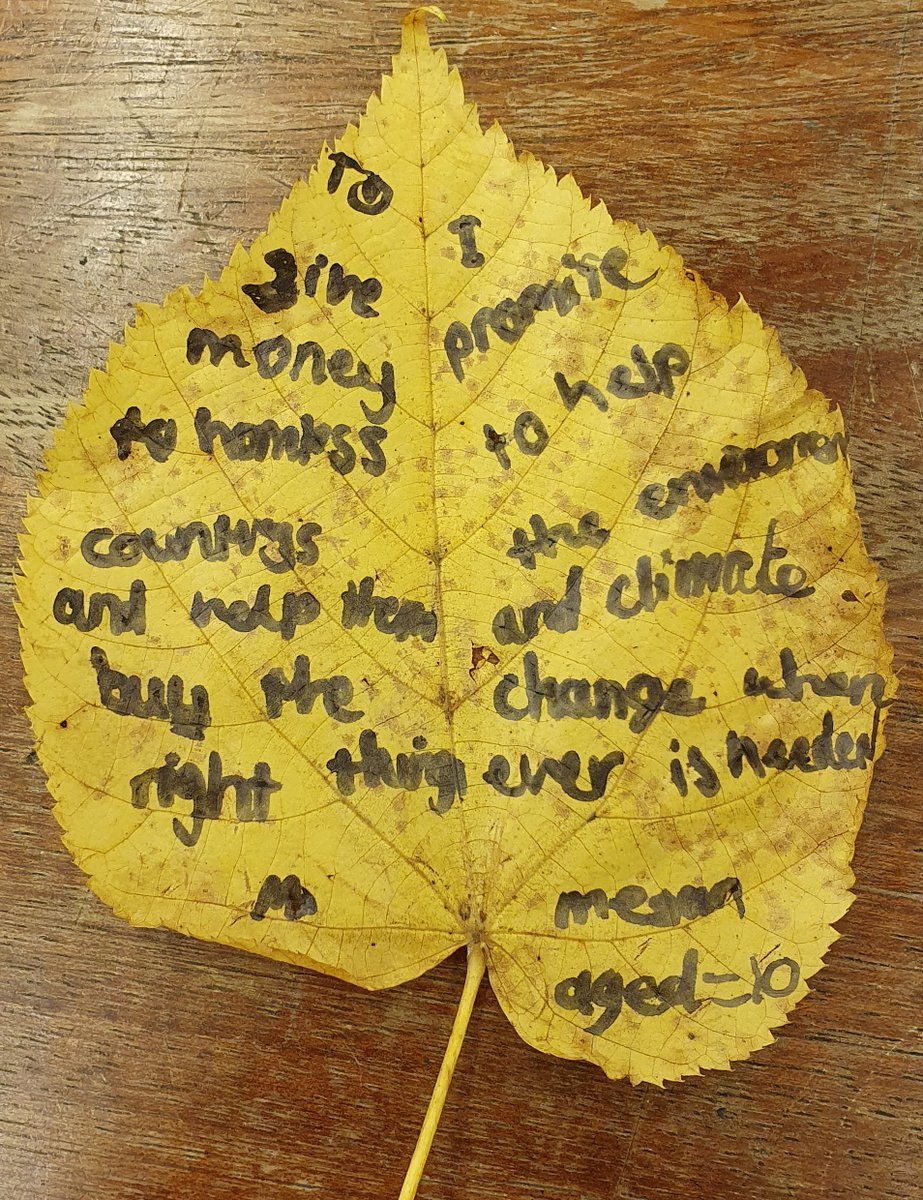 To
give
money
to homless
countrys
and help them
buy the
right thing
I
promise
to help
the environmen
and climate
change when
ever is needed
aged=10